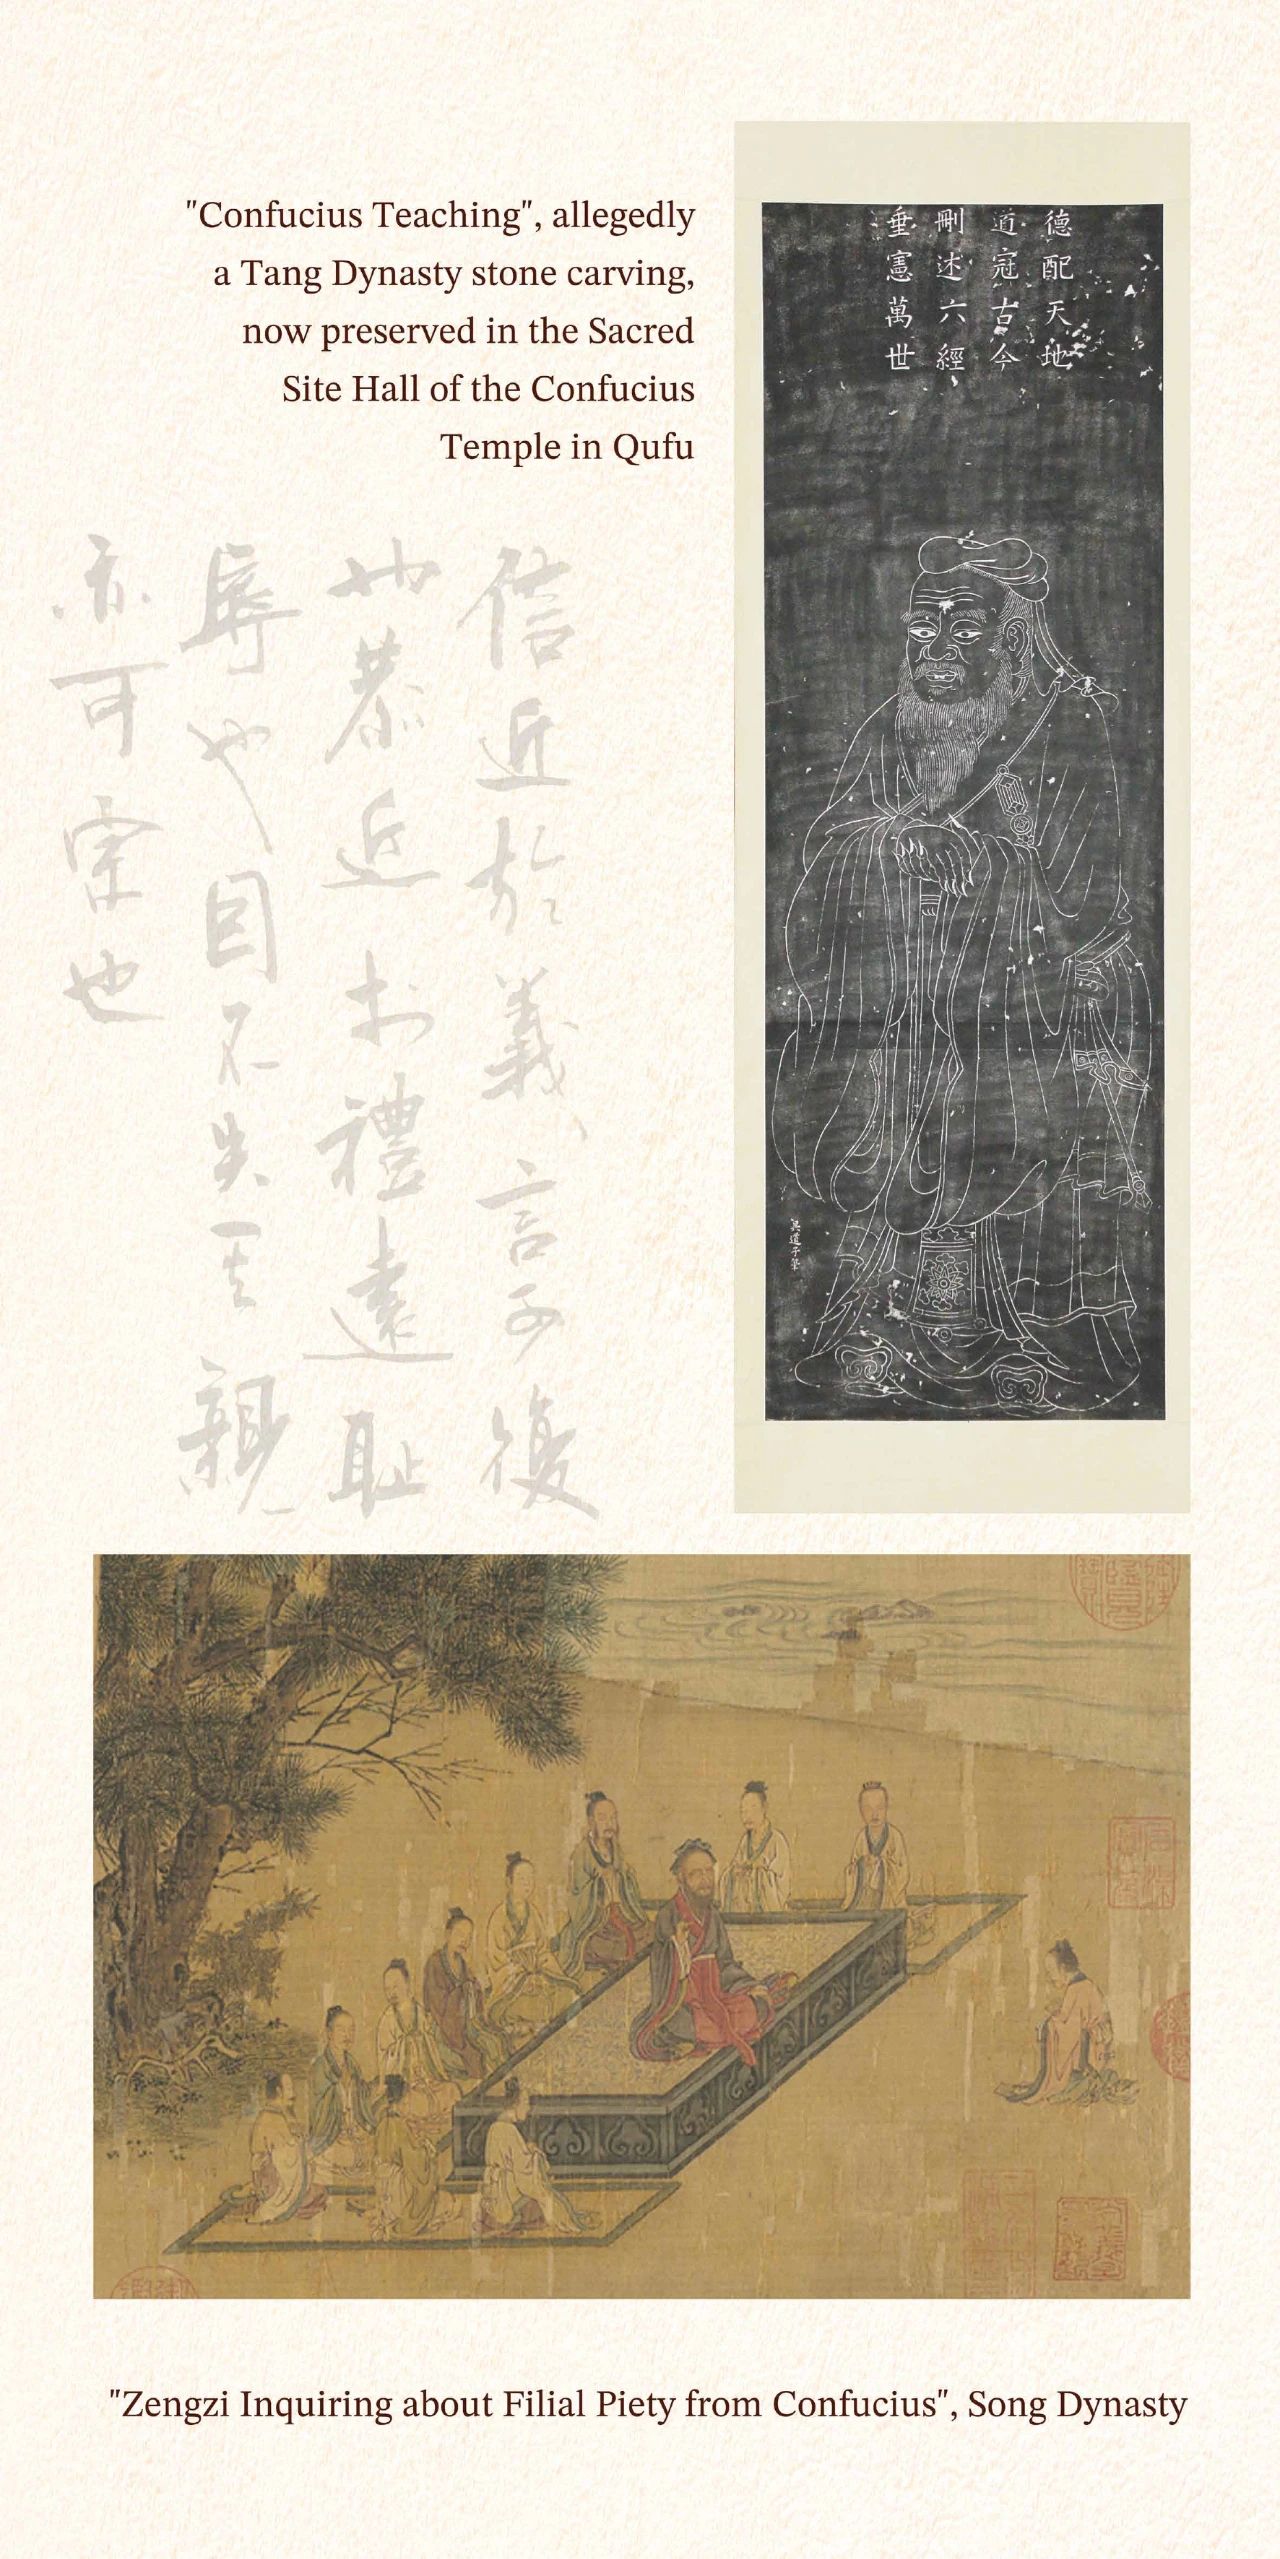 "Confucius Teaching", allegedly
a Tang Dynasty stone carving,
now preserved in the Sacred
Site Hall of the Confucius
Temple in Qufu
德配天地
道冠古今
刪述六經
垂憲萬世
吳道子筆
信近於義言可復
也恭近於禮遠耻
辱也因不失其親
亦可宗也
"Zengzi Inquiring about Filial Piety from Confucius", Song Dynasty